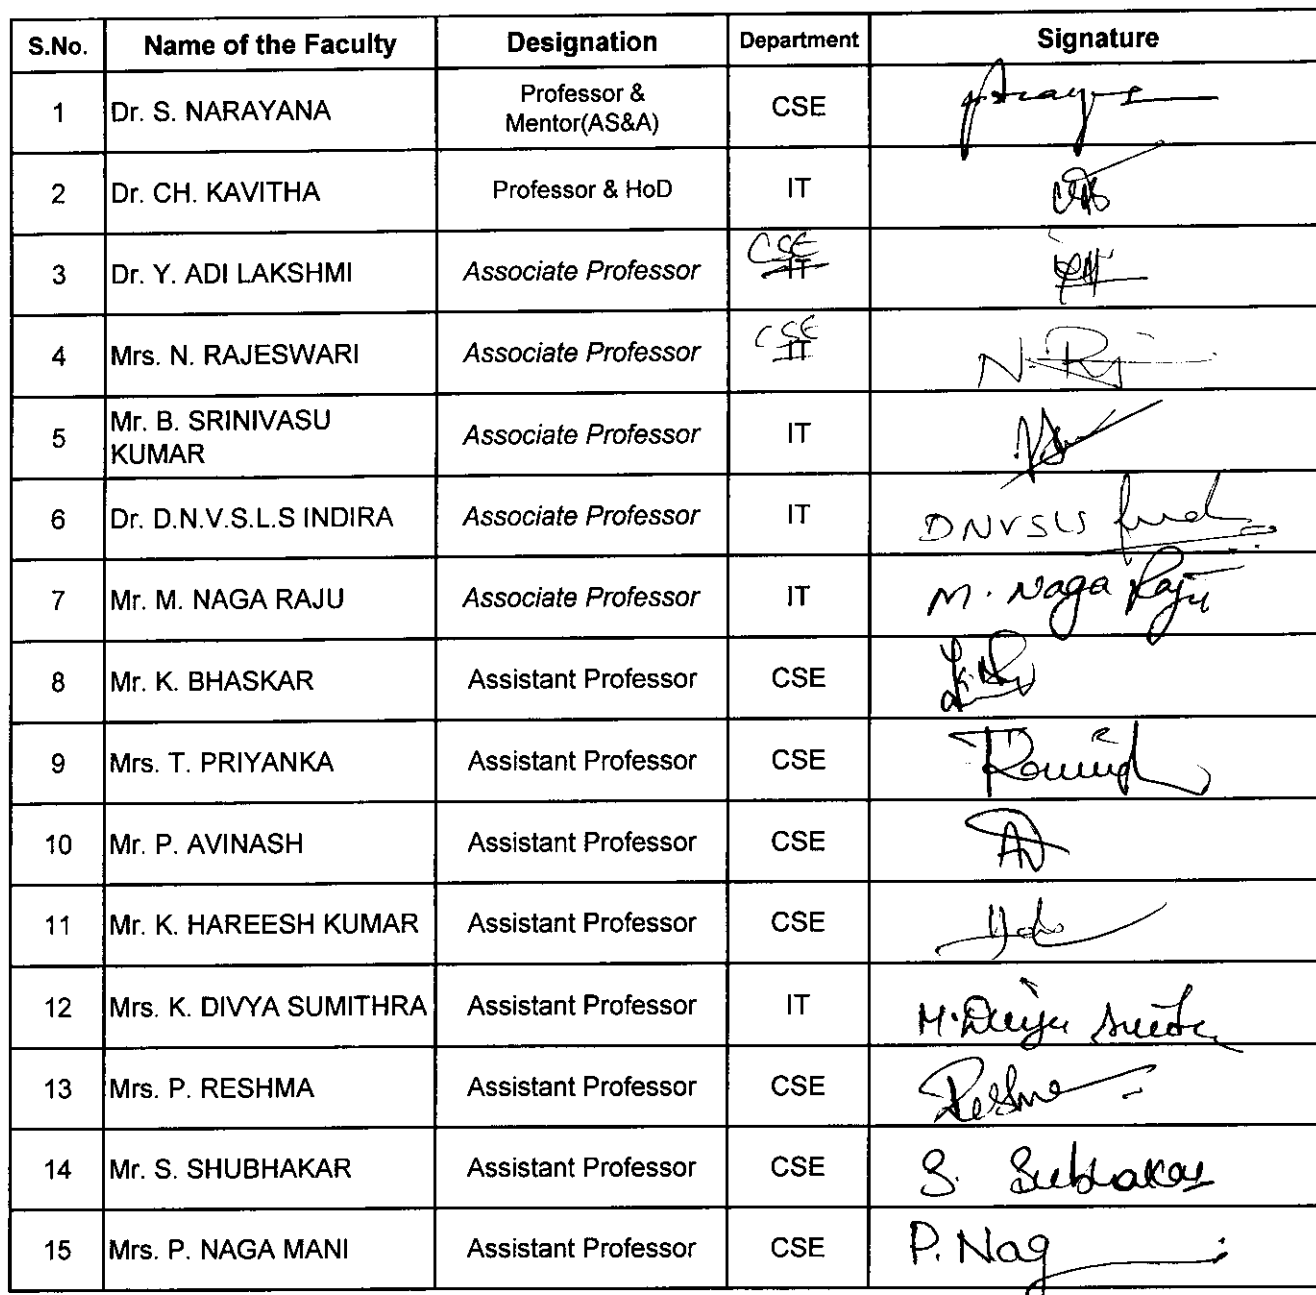 S.No. Name of the Faculty Designation Department Signature
1 Dr. S. NARAYANA Professor & Mentor(AS&A) CSE
2 Dr. CH. KAVITHA Professor & HoD IT
3 Dr. Y. ADI LAKSHMI Associate Professor CSE IT
4 Mrs. N. RAJESWARI Associate Professor CSE IT
5 Mr. B. SRINIVASU KUMAR Associate Professor IT
6 Dr. D.N.V.S.L.S INDIRA Associate Professor IT DNVSLS
7 Mr. M. NAGA RAJU Associate Professor IT M. Naga Raju
8 Mr. K. BHASKAR Assistant Professor CSE
9 Mrs. T. PRIYANKA Assistant Professor CSE
10 Mr. P. AVINASH Assistant Professor CSE
11 Mr. K. HAREESH KUMAR Assistant Professor CSE
12 Mrs. K. DIVYA SUMITHRA Assistant Professor IT
13 Mrs. P. RESHMA Assistant Professor CSE Reshma
14 Mr. S. SHUBHAKAR Assistant Professor CSE S. Subhakar
15 Mrs. P. NAGA MANI Assistant Professor CSE P. Nag